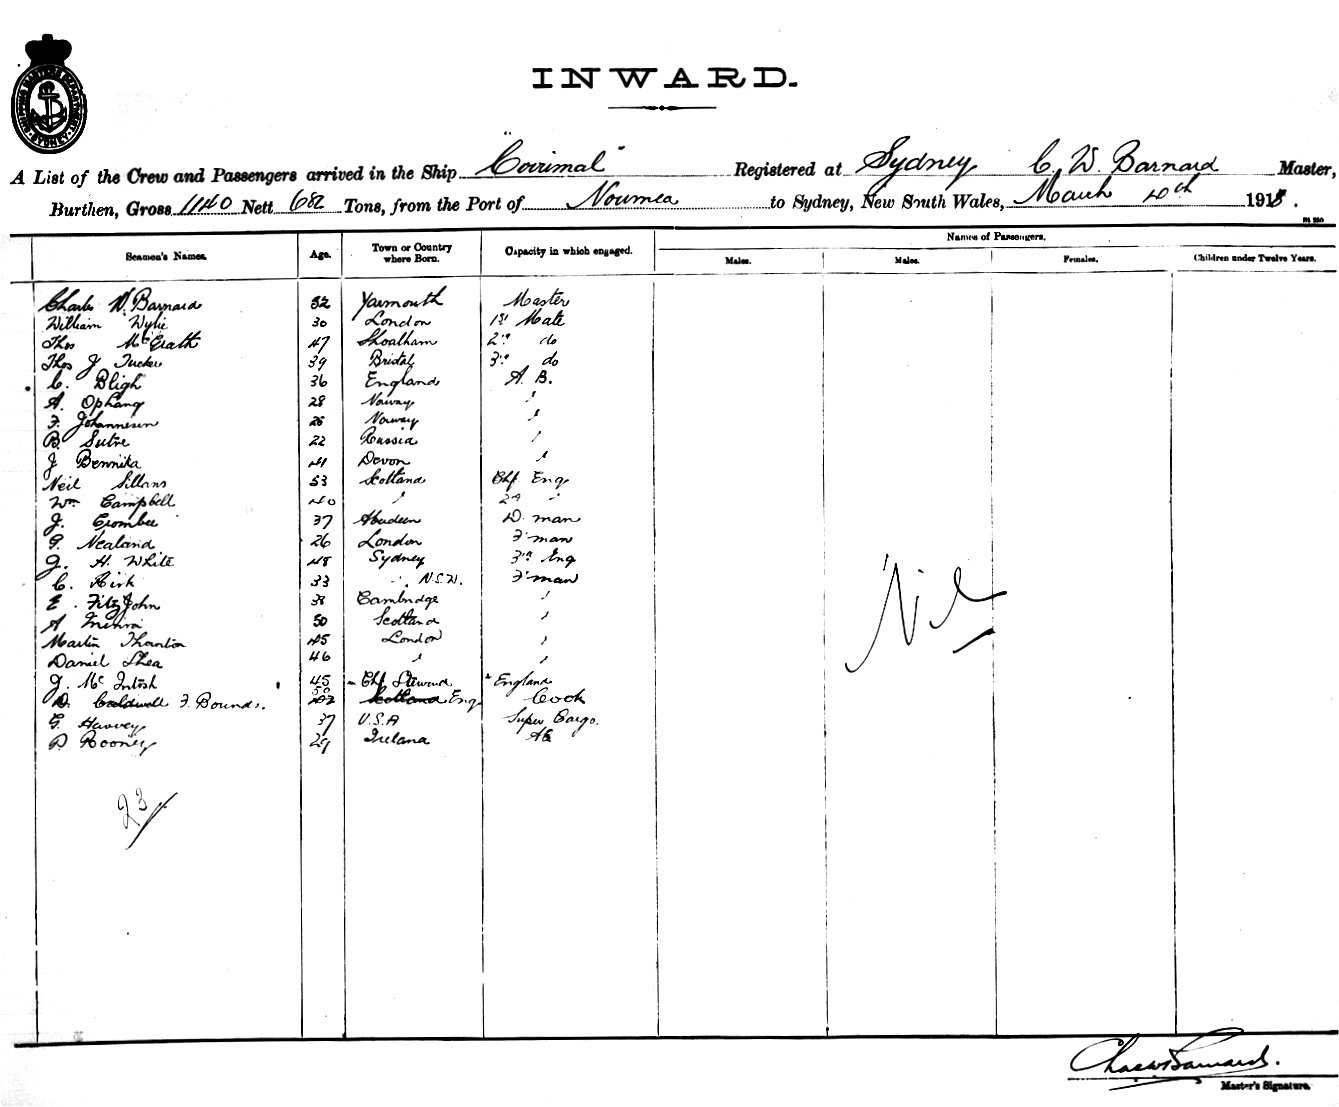 SHIPPING MASTER'S DEPARTMENT SYDNEY
INWARD.
A List of the Crew and Passengers arrived in the Ship "Corrimal" Registered at Sydney C. W. Barnard Master,
Burthen, Gross 1140 Nett 682 Tons, from the Port of Noumea to Sydney, New South Wales, March 4th 1918.
Names of Passengers.
Seamen's Names. Age. Town or Country where Born. Capacity in which engaged. Males. Males. Females. Children under Twelve Years.
Charles W. Barnard 52 Yarmouth Master
William Wylie 30 London 1st Mate
Thos McGrath 47 Shoalham 2nd do
Thos J Tucker 39 Bristol 3rd do
C. Bligh 36 England A. B.
A. Ophang 28 Norway "
F. Johannesen 26 Norway "
B. Sutre 22 Russia "
J Bennika 41 Devon "
Neil Sillans 53 Scotland Chf Eng
Wm Campbell 40 " 2nd "
J. Crombie 37 Aberdeen D. man
G. Nealand 26 London F'man
J. H. White 48 Sydney 3rd Eng
C. Kirk 33 " N.S.W. F'man
E. FitzJohn 38 Cambridge "
A 50 Scotland "
Martin Thornton 45 London "
Daniel Shea 46 " "
J. McIntosh 45 Chf Steward England
D. Caldwell F. Bounds. 50 Scotland Eng Cook
G. Harvey 37 U.S.A Super Cargo.
P Rooney 29 Ireland AB
Nil
23
Chas W Barnard.
Master's Signature.